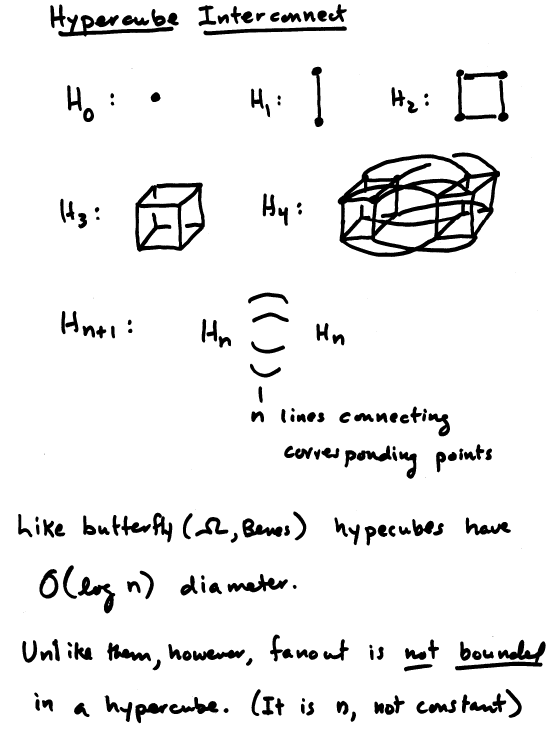 Hypercube Interconnect
H0 : H1 : H2 :
H3 : H4 :
Hn+1 : Hn Hn
n lines connecting
corresponding points
Like butterfly (Ω, Benes) hypecubes have
O(log n) diameter.
Unlike them, however, fanout is not bounded
in a hypercube. (It is n, not constant)